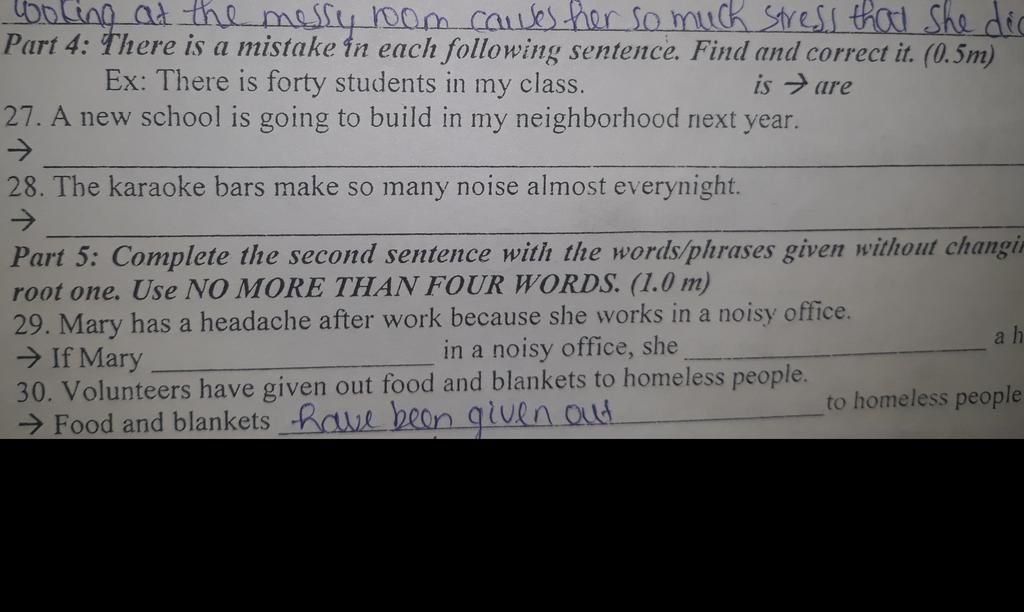 looking at the messy room causes her so much stress that she
Part 4: There is a mistake in each following sentence. Find and correct it. (0.5m)
Ex: There is forty students in my class. is → are
27. A new school is going to build in my neighborhood next year.
→
28. The karaoke bars make so many noise almost everynight.
→
Part 5: Complete the second sentence with the words/phrases given without
root one. Use NO MORE THAN FOUR WORDS. (1.0 m)
29. Mary has a headache after work because she works in a noisy office.
→ If Mary ____ in a noisy office, she ____ a
30. Volunteers have given out food and blankets to homeless people.
→ Food and blankets have been given out to homeless people